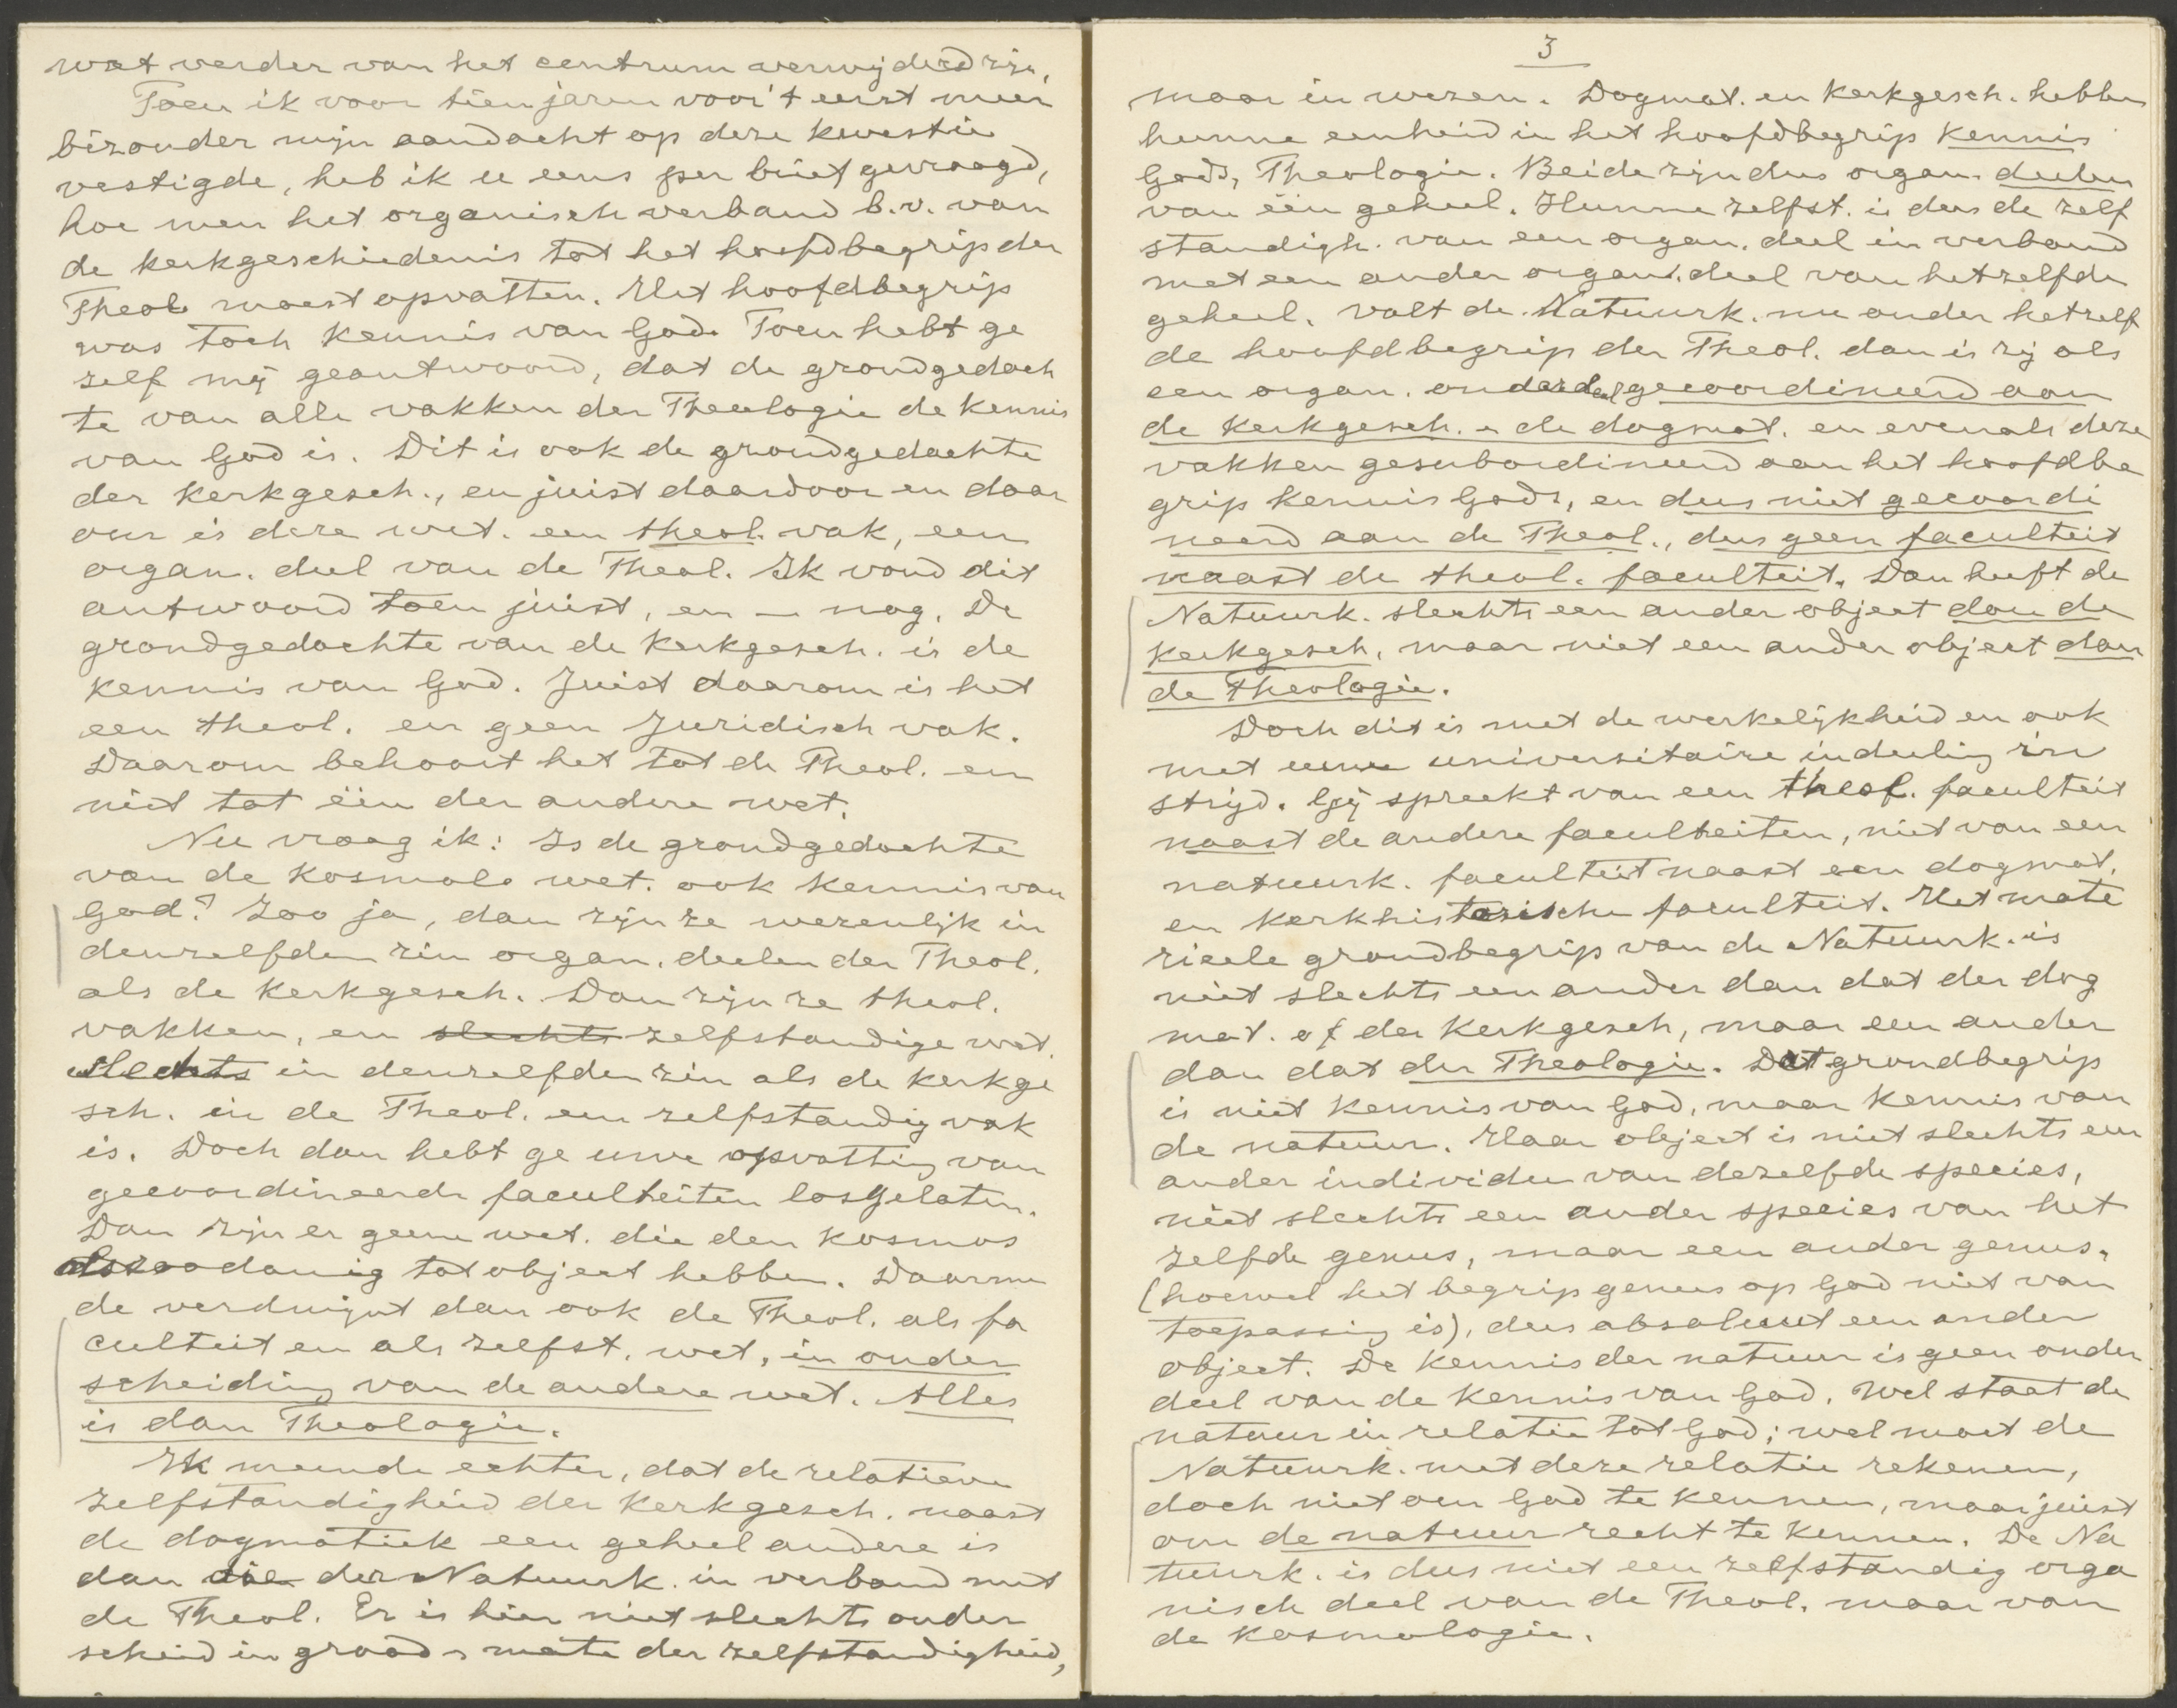 wat verder van het centrum verwijderd zijn.
Toen ik voor tien jaren voor 't eerst meer
bizonder mijn aandacht op deze kwestie
vestigde, heb ik u eens per brief gevraagd,
hoe men het organisch verband b.v. van
de kerkgeschiedenis tot het hoofdbegrip der
Theol. moest opvatten. Het hoofdbegrip
was toch kennis van God. Toen hebt ge
zelf mij geantwoord, dat de grondgedach
te van alle vakken der Theologie de kennis
van God is. Dit is ook de grondgedachte
der kerkgesch., en juist daardoor en daar
om is deze wet. een theol. vak, een
organ. deel van de Theol. Ik vond dit
antwoord toen juist, en — nog. De
grondgedachte van de kerkgesch. is de
kennis van God. Juist daarom is het
een theol. en geen Juridisch vak.
Daarom behoort het tot de Theol. en
niet tot één der andere wet.
Nu vraag ik: Is de grondgedachte
van de kosmol. wet. ook kennis van
God? Zoo ja, dan zijn ze wezenlijk in
denzelfden zin organ. deelen der Theol.
als de kerkgesch. Dan zijn ze theol.
vakken, en slechts zelfstandige wet.
slechts in denzelfden zin als de kerkge
sch. in de Theol. een zelfstandig vak
is. Doch dan hebt ge uwe opvatting van
gecoordineerde faculteiten losgelaten.
Dan zijn er geene wet. die den kosmos
als zoodanig tot object hebben. Daarme
de verdwijnt dan ook de Theol. als fa
culteit en als zelfst. wet. in onder
scheiding van de andere wet. Alles
is dan Theologie.
Ik meende echter, dat de relatieve
zelfstandigheid der kerkgesch. naast
de dogmatiek een geheel andere is
dan die der Natuurk. in verband met
de Theol. Er is hier niet slechts onder
scheid in graad en mate der zelfstandigheid,
3
maar in wezen. Dogmat. en kerkgesch. hebben
hunne eenheid in het hoofdbegrip kennis
Gods, Theologie. Beide zijn dus organ. deelen
van één geheel. Hunne zelfst. is dus de zelf
standigh. van een organ. deel in verband
met een ander organ. deel van hetzelfde
geheel. Valt de Natuurk. nu onder hetzelf
de hoofdbegrip der Theol. dan is zij als
een organ. onderdeel gecoordineerd aan
de kerkgesch. en de dogmat. en evenals deze
vakken gesubordineerd aan het hoofdbe
grip kennis Gods, en dus niet gecoordi
neerd aan de Theol., dus geen faculteit
naast de theol. faculteit. Dan heeft de
Natuurk. slechts een ander object dan de
kerkgesch, maar niet een ander object dan
de Theologie.
Doch dit is met de werkelijkheid en ook
met uwe universitaire indeeling in
strijd. Gij spreekt van een theol. faculteit
naast de andere faculteiten, niet van een
natuurk. faculteit naast een dogmat.
en kerkhistorische faculteit. Het mate
rieele grondbegrip van de Natuurk. is
niet slechts een ander dan dat der dog
mat. of der kerkgesch, maar een ander
dan dat der Theologie. Dat grondbegrip
is niet kennis van God, maar kennis van
de natuur. Haar object is niet slechts een
ander individu van dezelfde species,
niet slechts een ander species van het
zelfde genus, maar een ander genus.
(hoewel het begrip genus op God niet van
toepassing is), dus absoluut een ander
object. De kennis der natuur is geen onder
deel van de kennis van God. Wel staat de
natuur in relatie tot God; wel moet de
Natuurk. met deze relatie rekenen,
doch niet om God te kennen, maar juist
om de natuur recht te kennen. De Na
tuurk. is dus niet een zelfstandig orga
nisch deel van de Theol. maar van
de kosmologie.